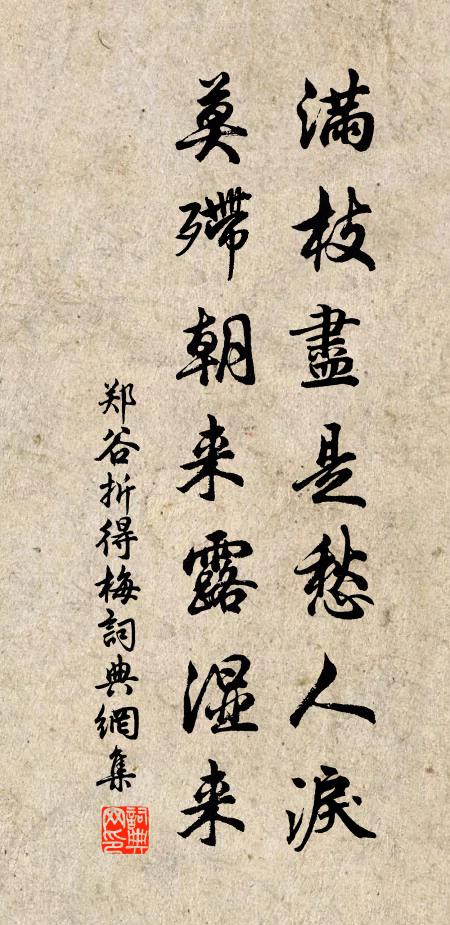 滿枝盡是愁人淚
莫殢朝来露湿来
郑谷折得梅詞典網集
詞典网印